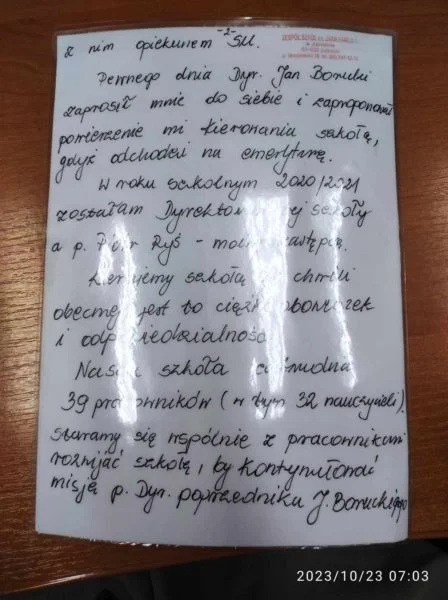 -2-
z nim opiekunem SU.
ZESPÓŁ SZKÓŁ im. JANA PAWŁA II
Pewnego dnia Dyr. Jan Borucki
zaprosił mnie do siebie i zaproponował
powierzenie mi kierowania szkołą,
gdyż odchodził na emeryturę.
W roku szkolnym 2020/2021
zostałam Dyrektorem tej szkoły
a p. Piotr Ryś - moim zastępcą.
Kierujemy szkołą do chwili
obecnej, jest to ciężki obowiązek
i odpowiedzialność.
Nasza szkoła zatrudnia
39 pracowników (w tym 32 nauczycieli).
Staramy się wspólnie z pracownikami
rozwijać szkołę, by kontynuować
misję p. Dyr. poprzednika J. Boruckiego
2023/10/23 07:03